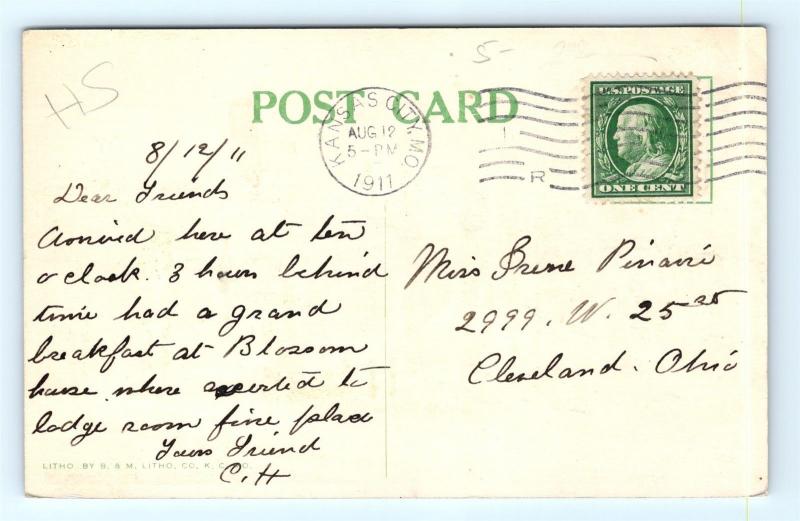 HS
5-
POST CARD
KANSAS CITY, MO.
AUG 12
5-PM
1911
R
U.S. POSTAGE
ONE CENT
8/12/11
Dear Friends
arrived here at ten
o clock. 3 hours behind
time had a grand
breakfast at Blossom
house where escorted to
lodge room fine place
Yours Friend
C. H
Miss Irene
2999. W. 25 st
Cleveland. Ohio
LITHO. BY B. & M. LITHO. CO. K. C. MO.